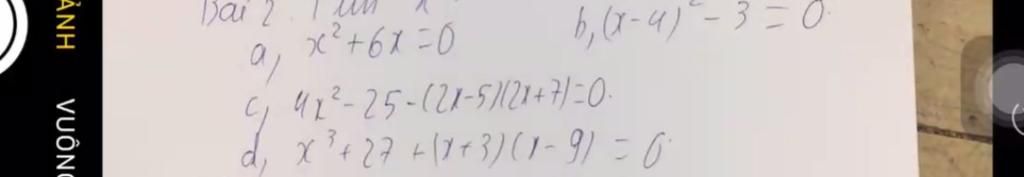 Bài 2. Tìm x
a, x²+6x=0
b, (x-4)²-3=0.
c, 4x²-25-(2x-5)(2x+7)=0.
d, x³+27+(x+3)(x-9)=0.
ẢNH
VUÔNG